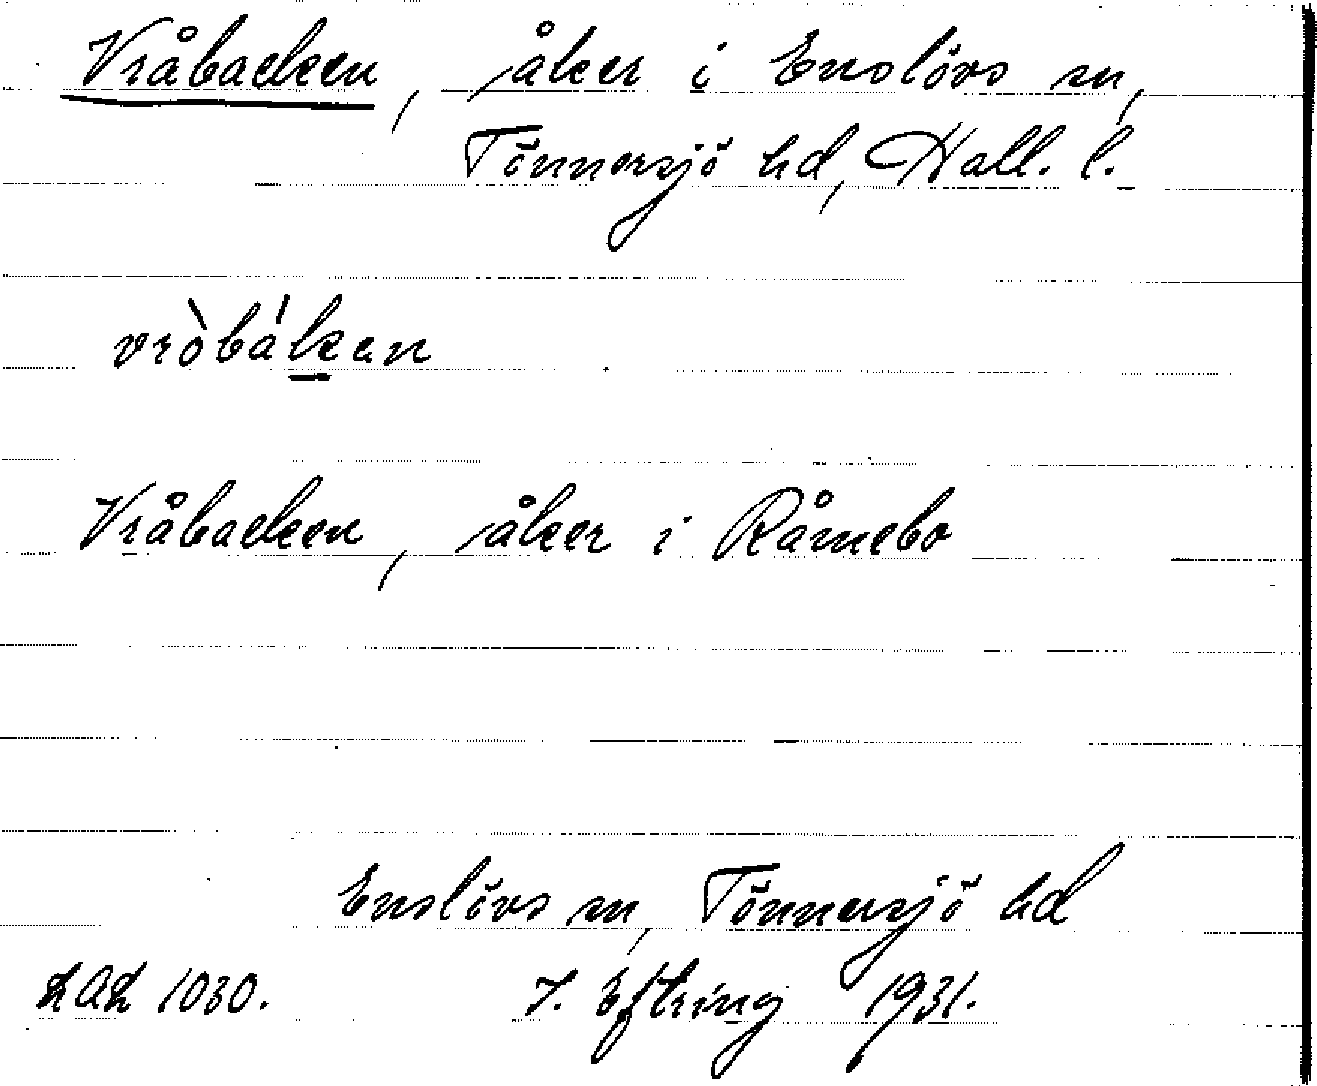 Vråbacken, åker i Enslövs sn,
Tönnersjö hd, Hall. l.
vròbákan
Vråbacken, åker i Råmebo
Enslövs sn, Tönnersjö hd
LAL 1030. 7. Eftring 1931.